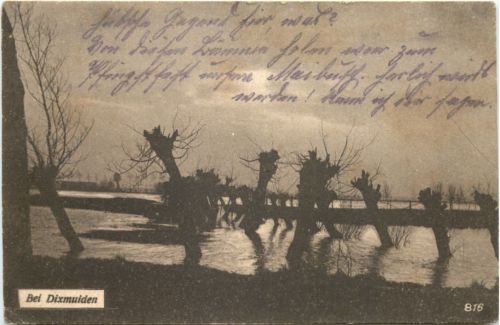 hübsche Gegend hier, was?
Von diesen Bäumen holen wir zum
Pfingstfest unsere Maibusch. Herlich wirds
werden! Kann ich dir sagen.
Bei Dixmuiden
816